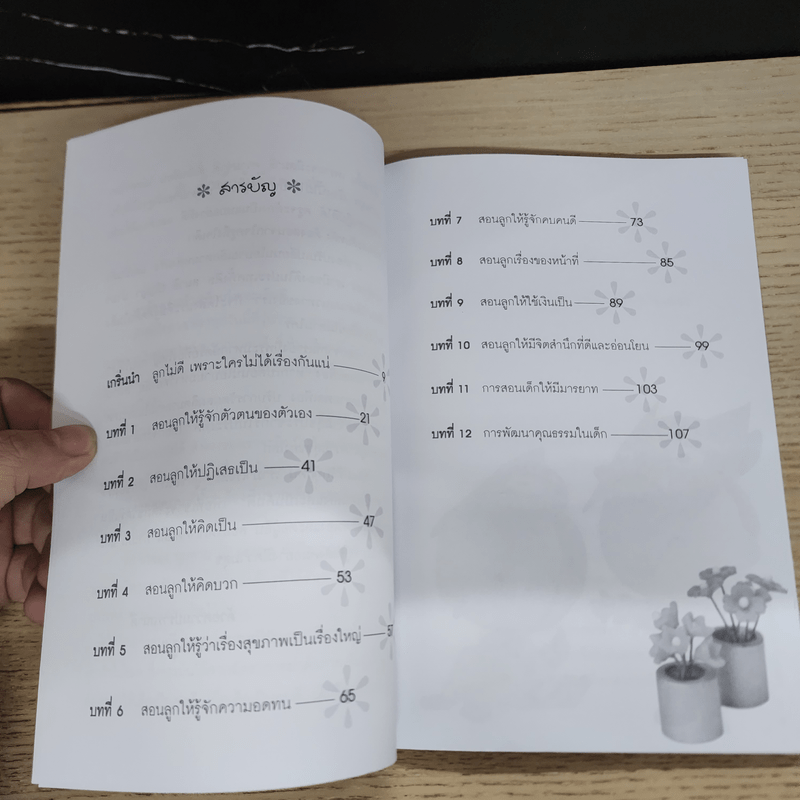 สารบัญ
เกริ่นนำ ลูกไม่ดี เพราะใครไม่ได้เรื่องกันแน่ 9
บทที่ 1 สอนลูกให้รู้จักตัวตนของตัวเอง 21
บทที่ 2 สอนลูกให้ปฏิเสธเป็น 41
บทที่ 3 สอนลูกให้คิดเป็น 47
บทที่ 4 สอนลูกให้คิดบวก 53
บทที่ 5 สอนลูกให้รู้ว่าเรื่องสุขภาพเป็นเรื่องใหญ่
บทที่ 6 สอนลูกให้รู้จักความอดทน 65
บทที่ 7 สอนลูกให้รู้จักคบคนดี 73
บทที่ 8 สอนลูกเรื่องของหน้าที่ 85
บทที่ 9 สอนลูกให้ใช้เงินเป็น 89
บทที่ 10 สอนลูกให้มีจิตสำนึกที่ดีและอ่อนโยน 99
บทที่ 11 การสอนเด็กให้มีมารยาท 103
บทที่ 12 การพัฒนาคุณธรรมในเด็ก 107